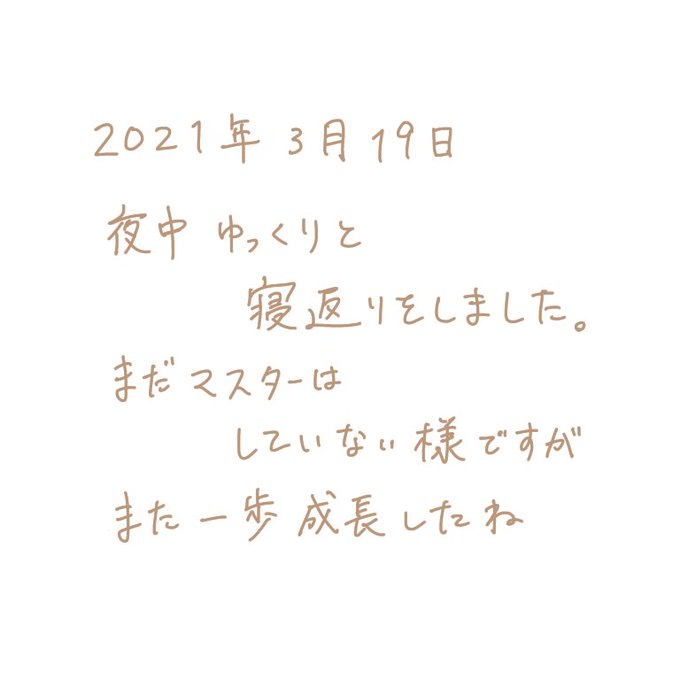 2021年3月19日
夜中ゆっくりと
寝返りをしました。
まだマスターは
していない様ですが
また一歩成長したね